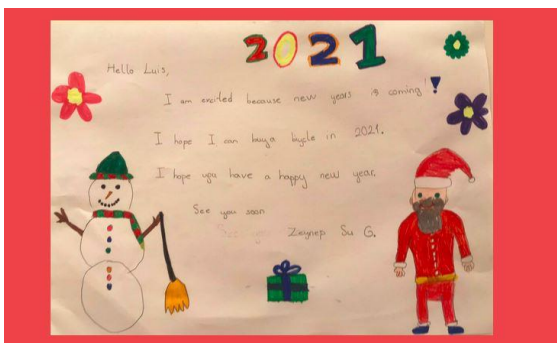 2021
Hello Luis,
I am excited because new years is coming!
I hope I can buy a bicycle in 2021.
I hope you have a happy new year.
See you soon
Zeynep Su G.